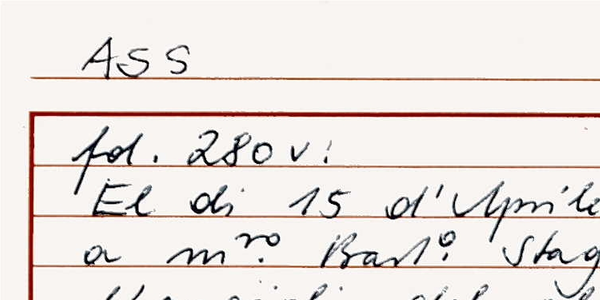 ASS
fol. 280v:
El di 15 d'Aprile
a mro: Barto: Stag